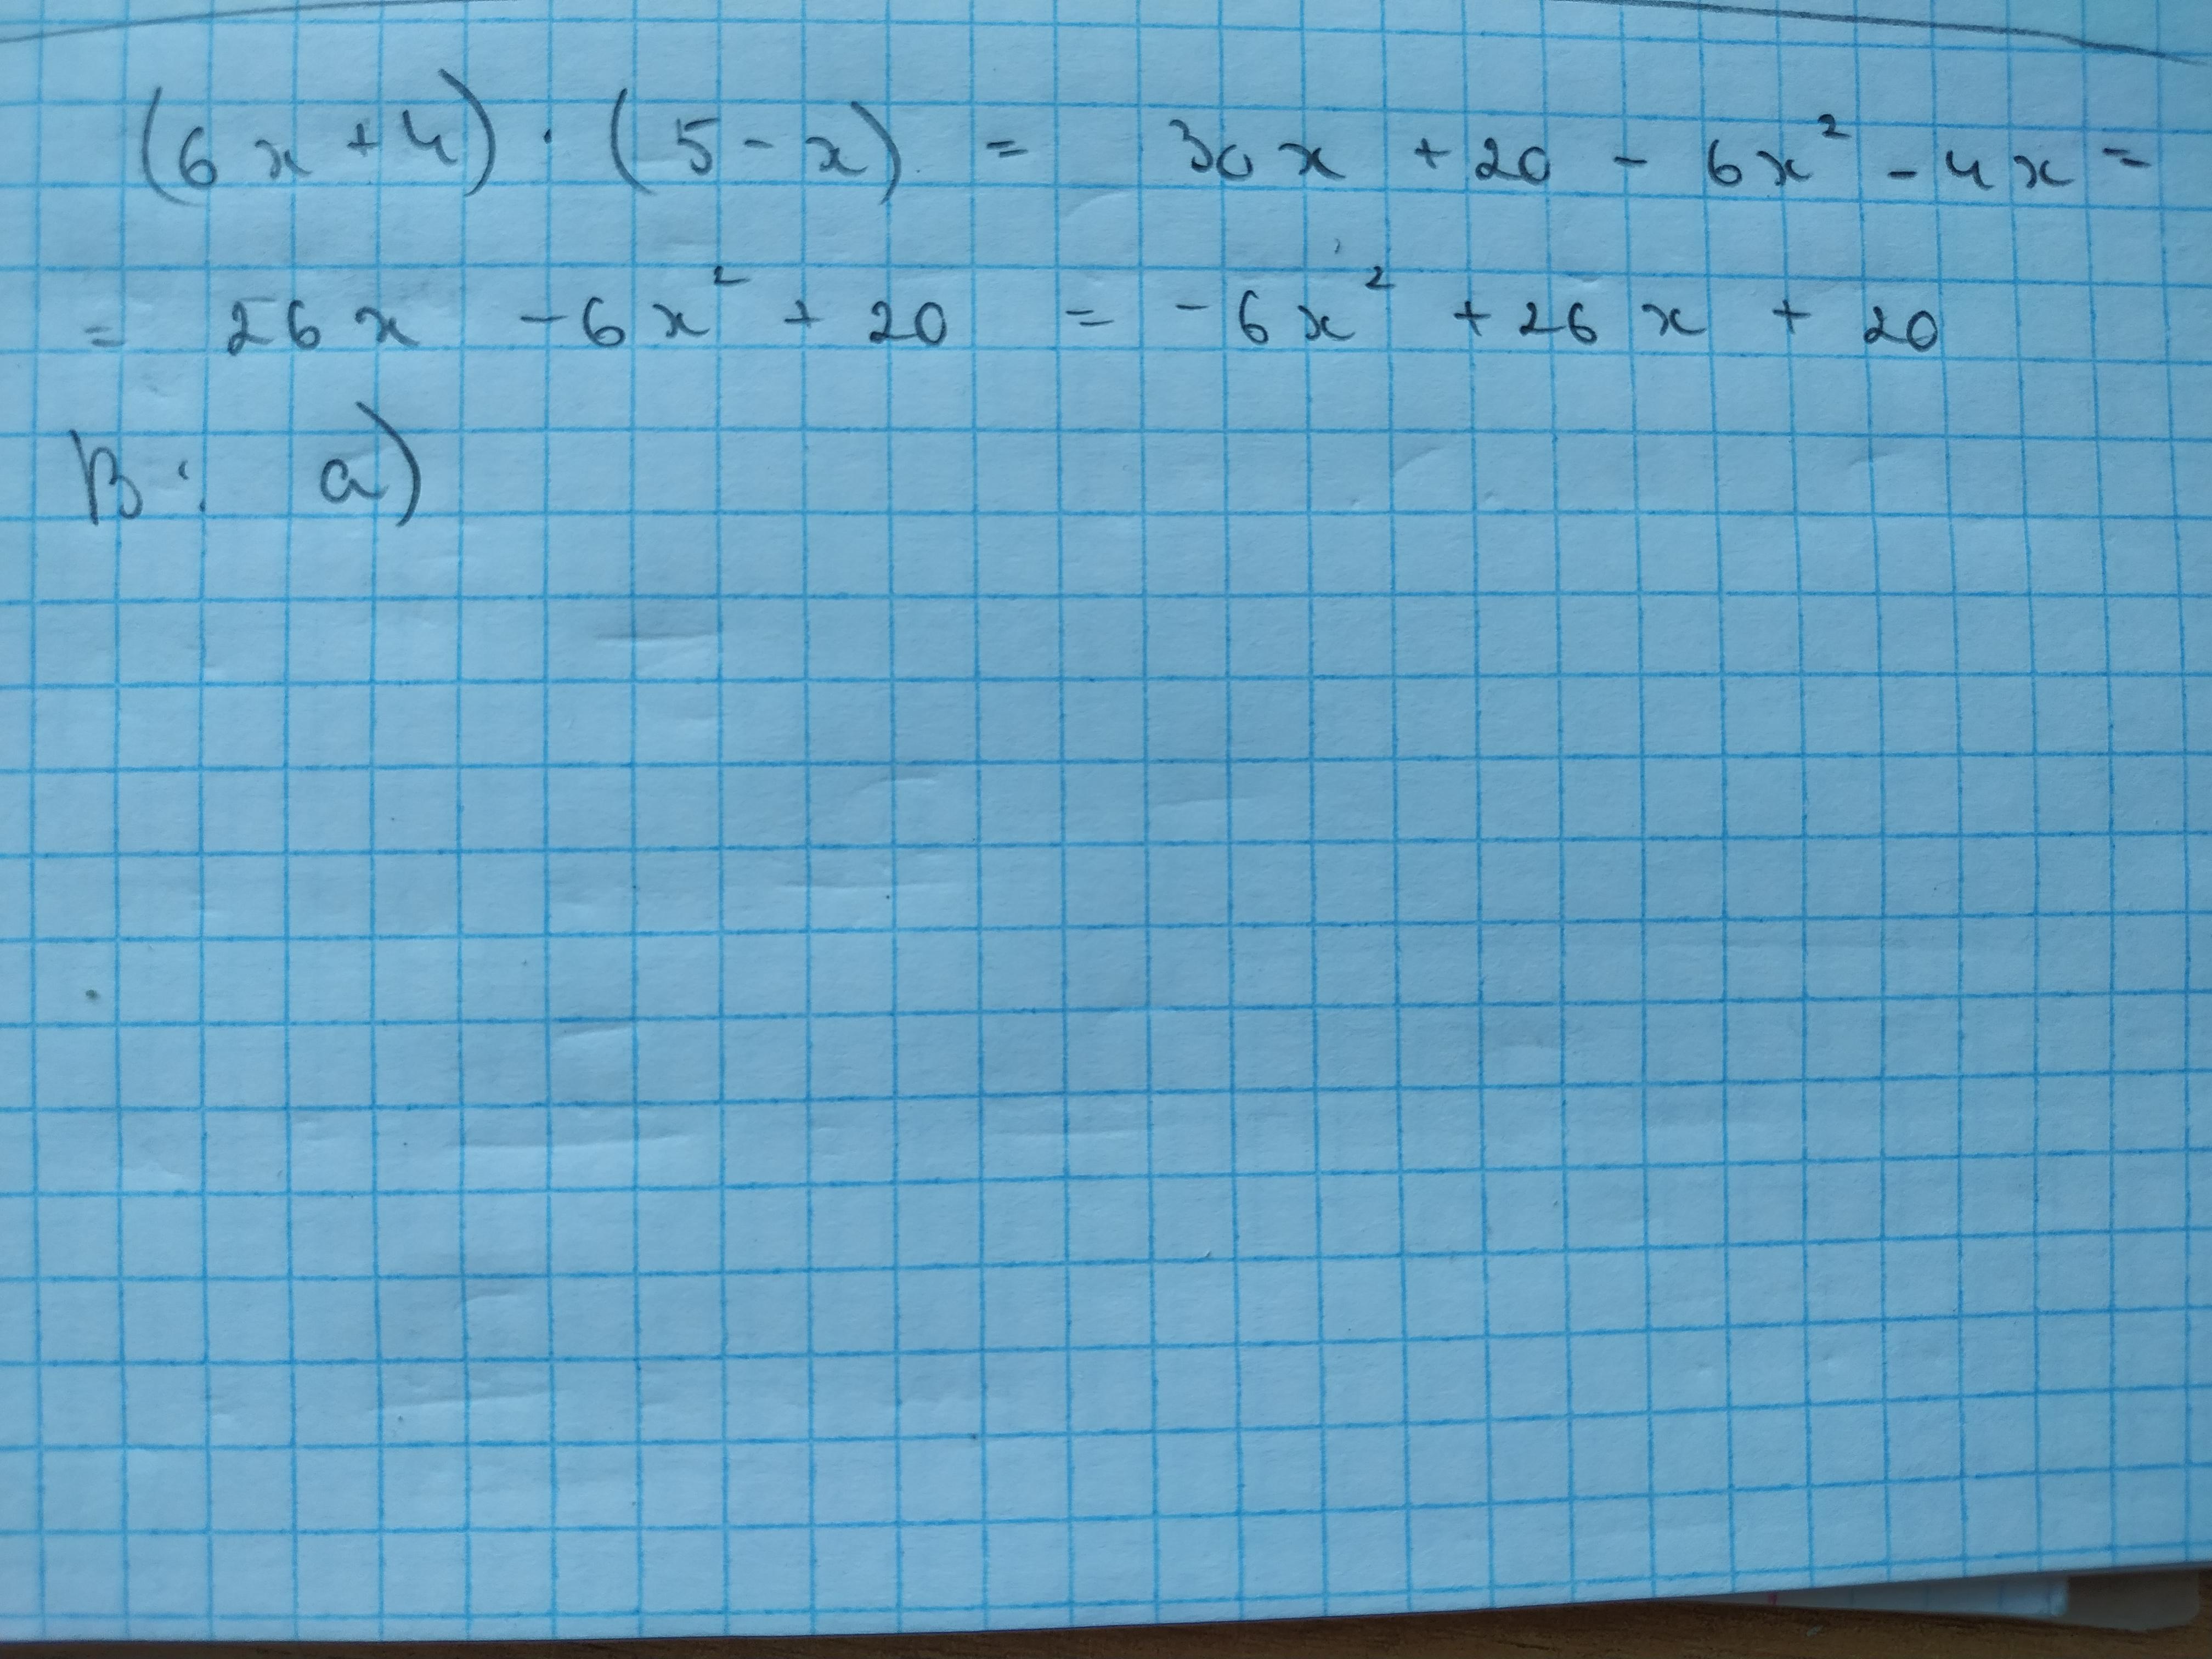 (6x+4)·(5-x) = 30x + 20 - 6x² - 4x =
= 26x - 6x² + 20 = -6x² + 26x + 20
В: а)